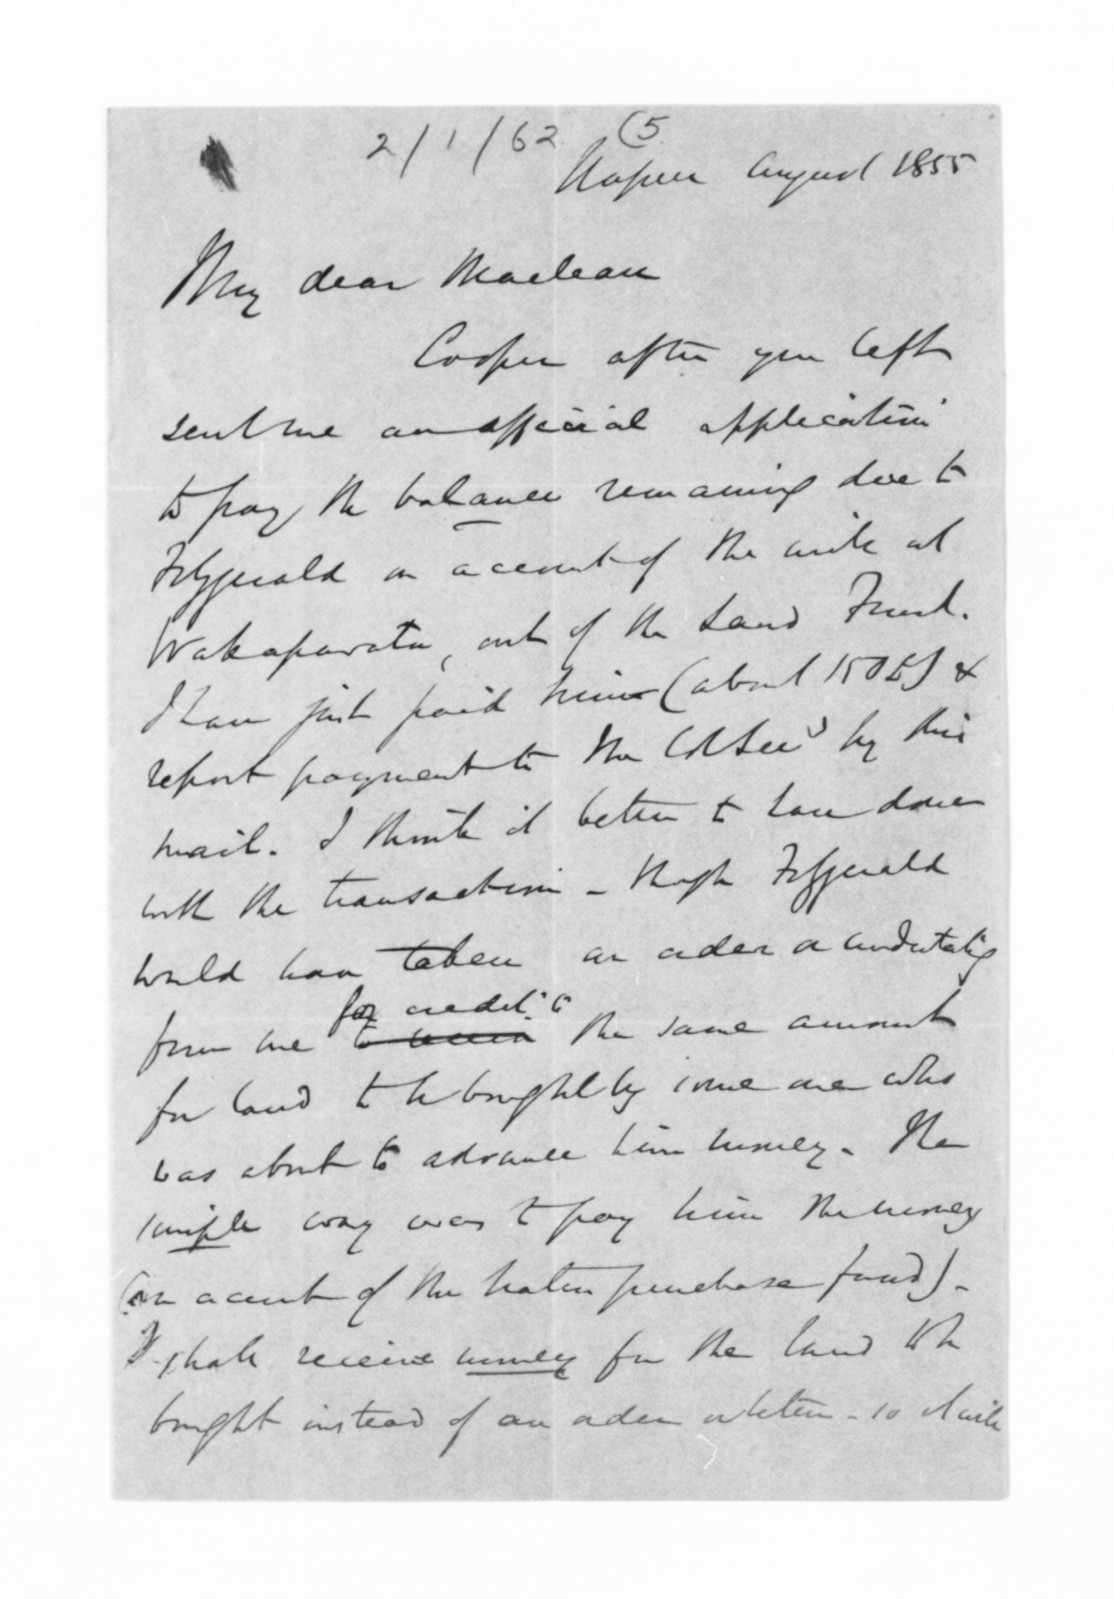 2/1/62 (5
Napier August 1855
My dear Maclean
Cooper after you left
sent me an official application
to pay the balance remaining due to
Fitzgerald on account of the mile at
Wakaparata, out of the Land Fund.
I have just paid him (about 150£) &
report payment to the Col Secy by this
mail. I think it better to have done
with the transaction - though Fitzgerald
would have taken an order or undertaking
from me for credit to the same amount
for land to be bought by some one who
was about to advance him money. The
simple way was to pay him the money
(on account of the native purchase fund) -
I shall receive money for the land to be
bought instead of an order - so it will